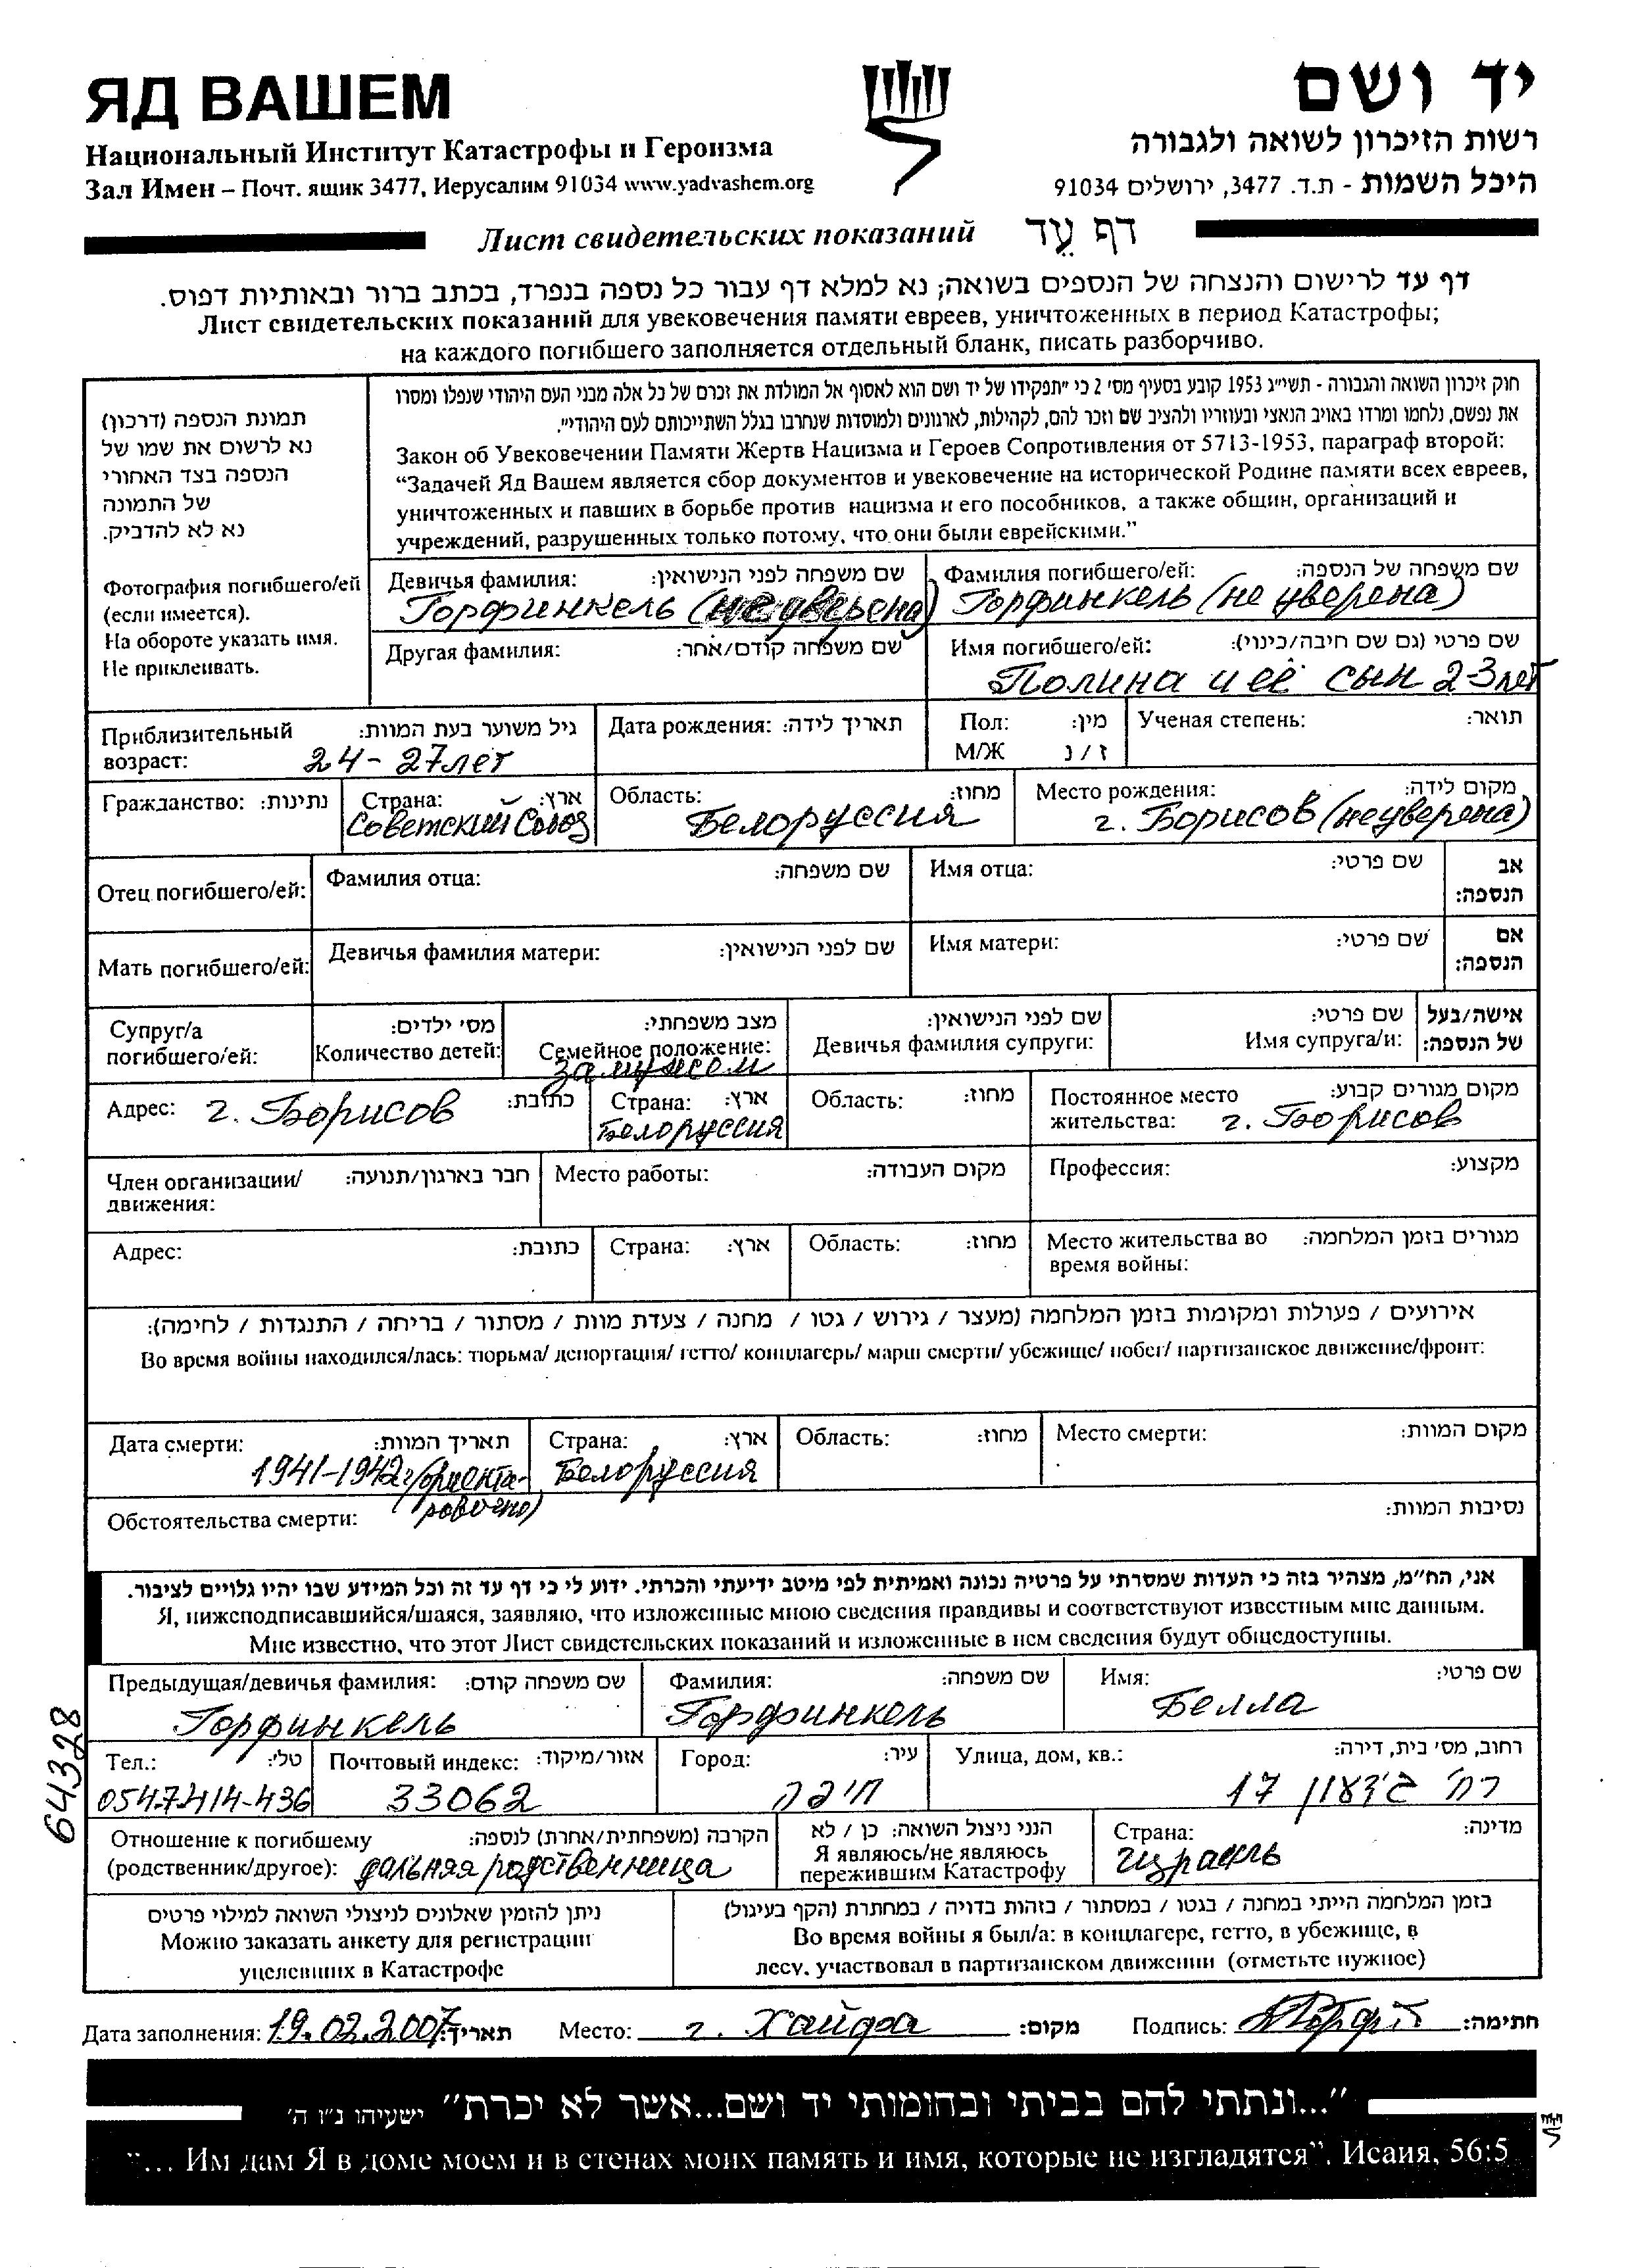 ЯД ВАШЕМ
Национальный Институт Катастрофы и Героизма
Зал Имен – Почт. ящик 3477, Иерусалим 91034 www.yadvashem.org
יד ושם
רשות הזיכרון לשואה ולגבורה
היכל השמות - ת.ד. 3477, ירושלים 91034
Лист свидетельских показаний דף עֵד
דף עד לרישום והנצחה של הנספים בשואה; נא למלא דף עבור כל נספה בנפרד, בכתב ברור ובאותיות דפוס.
Лист свидетельских показаний для увековечения памяти евреев, уничтоженных в период Катастрофы;
на каждого погибшего заполняется отдельный бланк, писать разборчиво.
תמונת הנספה (דרכון)
נא לרשום את שמו של
הנספה בצד האחורי
של התמונה
נא לא להדביק.
Фотография погибшего/ей
(если имеется).
На обороте указать имя.
Не приклеивать.
חוק זיכרון השואה והגבורה - תשי״ג 1953 קובע בסעיף מס׳ 2 כי ״תפקידו של יד ושם הוא לאסוף אל המולדת את זכרם של כל אלה מבני העם היהודי שנפלו ומסרו
את נפשם, נלחמו ומרדו באויב הנאצי ובעוזריו ולהציב שם וזכר להם, לקהילות, לארגונים ולמוסדות שנחרבו בגלל השתייכותם לעם היהודי״.
Закон об Увековечении Памяти Жертв Нацизма и Героев Сопротивления от 5713-1953, параграф второй:
“Задачей Яд Вашем является сбор документов и увековечение на исторической Родине памяти всех евреев,
уничтоженных и павших в борьбе против нацизма и его пособников, а также общин, организаций и
учреждений, разрушенных только потому, что они были еврейскими.”
Девичья фамилия: שם משפחה לפני הנישואין:
Горфинкель (не уверена)
Фамилия погибшего/ей: שם משפחה של הנספה:
Горфинкель (не уверена)
Другая фамилия: שם משפחה קודם/אחר:
Имя погибшего/ей: שם פרטי (גם שם חיבה/כינוי):
Полина и её сын 2-3 лет
Приблизительный возраст: גיל משוער בעת המוות:
24 - 27 лет
Дата рождения: תאריך לידה:
Пол: מין:
М/Ж ז / נ
Ученая степень: תואר:
Гражданство: נתינות:
Страна: ארץ:
Советский Союз
Область: מחוז:
Белоруссия
Место рождения: מקום לידה:
г. Борисов (не уверена)
Отец погибшего/ей:
Фамилия отца: שם משפחה:
Имя отца: שם פרטי:
אב
הנספה:
Мать погибшего/ей:
Девичья фамилия матери: שם לפני הנישואין:
Имя матери: שם פרטי:
אם
הנספה:
Супруг/а
погибшего/ей:
מס׳ ילדים:
Количество детей:
מצב משפחתי:
Семейное положение:
замужем
שם לפני הנישואין:
Девичья фамилия супруги:
שם פרטי:
Имя супруга/и:
אישה/בעל
של הנספה:
Адрес: г. Борисов כתובת:
Страна: ארץ:
Белоруссия
Область: מחוז:
Постоянное место מקום מגורים קבוע:
жительства: г. Борисов
Член организации/ חבר בארגון/תנועה:
движения:
Место работы: מקום העבודה:
Профессия: מקצוע:
Адрес: כתובת:
Страна: ארץ:
Область: מחוז:
Место жительства во מגורים בזמן המלחמה:
время войны:
אירועים / פעולות ומקומות בזמן המלחמה (מעצר / גירוש / גטו / מחנה / צעדת מוות / מסתור / בריחה / התנגדות / לחימה):
Во время войны находился/лась: тюрьма/ депортация/ гетто/ концлагерь/ марш смерти/ убежище/ побег/ партизанское движение/фронт:
Дата смерти: תאריך המוות:
1941-1942 г (ориента-
ровочно)
Страна: ארץ:
Белоруссия
Область: מחוז:
Место смерти: מקום המוות:
Обстоятельства смерти: נסיבות המוות:
אני, הח״מ, מצהיר בזה כי העדות שמסרתי על פרטיה נכונה ואמיתית לפי מיטב ידיעתי והכרתי. ידוע לי כי דף עד זה וכל המידע שבו יהיו גלויים לציבור.
Я, нижеподписавшийся/шаяся, заявляю, что изложенные мною сведения правдивы и соответствуют известным мне данным.
Мне известно, что этот Лист свидетельских показаний и изложенные в нем сведения будут общедоступны.
Предыдущая/девичья фамилия: שם משפחה קודם:
Горфинкель
Фамилия: שם משפחה:
Горфинкель
Имя: שם פרטי:
Белла
Тел.: טלי:
0547414-436
Почтовый индекс: אזור/מיקוד:
33062
Город: עיר:
חיפה
Улица, дом, кв.: רחוב, מס׳ בית, דירה:
רח׳ גדעון 17
Отношение к погибшему הקרבה (משפחתית/אחרת) לנספה:
(родственник/другое): дальняя родственница
הנני ניצול השואה: כן / לא
Я являюсь/не являюсь
пережившим Катастрофу
Страна: מדינה:
Израиль
ניתן להזמין שאלונים לניצולי השואה למילוי פרטים
Можно заказать анкету для регистрации
уцелевших в Катастрофе
בזמן המלחמה הייתי במחנה / בגטו / במסתור / בזהות בדויה / במחתרת (הקף בעיגול)
Во время войны я был/а: в концлагере, гетто, в убежище, в
лесу, участвовал в партизанском движении (отметьте нужное)
64328
Дата заполнения: 19.02.2007 תאריך: Место: г. Хайфа מקום: Подпись: חתימה:
״...ונתתי להם בביתי ובחומותי יד ושם...אשר לא יכרת״ ישעיהו נ״ו ה׳
“... Им дам Я в доме моем и в стенах моих память и имя, которые не изгладятся”. Исаия, 56:5